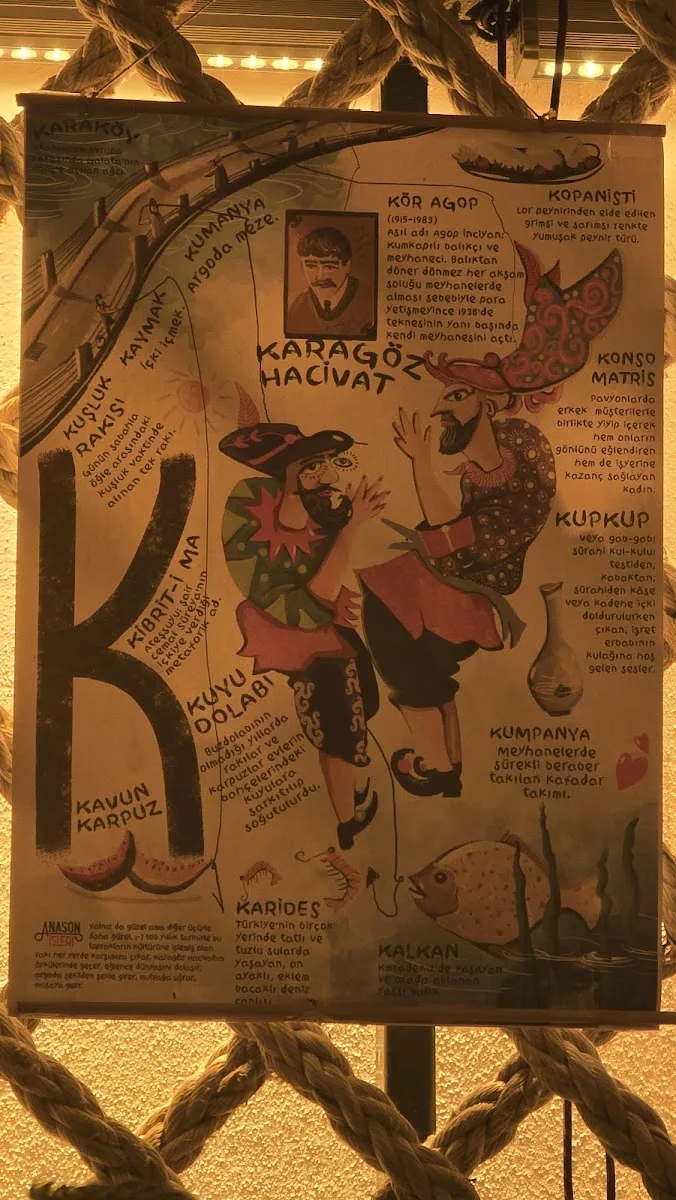 KARAKÖY
KUMANYA
Argoda meze.
KAYMAK
İçki içmek.
KUŞLUK
RAKISI
Günün sabahla
öğle arasındaki
kuşluk vaktinde
alınan tek rakı.
KÖR AGOP
(1915-1983)
Asıl adı Agop İnciyan;
Kumkapılı balıkçı ve
meyhaneci. Balıktan
döner dönmez her akşam
soluğu meyhanelerde
alması sebebiyle para
yetişmeyince 1938'de
teknesinin yanı başında
kendi meyhanesini açtı.
KOPANİSTİ
Lor peynirinden elde edilen
grimsi ve sarımsı renkte
yumuşak peynir türü.
KARAGÖZ
HACİVAT
KONSO
MATRİS
Pavyonlarda
erkek müşterilerle
birlikte yiyip içerek
hem onların
gönlünü eğlendiren
hem de işyerine
kazanç sağlayan
kadın.
KUPKUP
veya gab-gabı
sürahi kul-kulu;
testiden,
kabaktan,
sürahiden kâse
veya kadehe içki
doldurulurken
çıkan, işret
erbabının
kulağına hoş
gelen sesler.
K
KİBRİT-İ MA
Ateşsuyu; şair
Cemal Süreya'nın
içkiye verdiği
metaforik ad.
KUYU
DOLABI
Buzdolabının
olmadığı yıllarda
rakılar ve
karpuzlar evlerin
bahçelerindeki
kuyulara
sarkıtılıp
soğutulurdu.
KUMPANYA
Meyhanelerde
sürekli beraber
takılan kafadar
takımı.
KAVUN
KARPUZ
KARİDES
Türkiye'nin birçok
yerinde tatlı ve
tuzlu sularda
yaşayan, on
ayaklı, eklem
bacaklı deniz
canlısı.
KALKAN
Karadeniz'de yaşayan
ANASON
İŞLERİ
Yalnız da güzel ama diğer üçüyle
daha güzel. 500 yıllık tarihine bu
toprakların kültürüne işlemiş olan
rakı her yerde karşımıza çıkar. Karagöz Hacivat'ın
öykülerinde geçer, eğlence dünyasını dolaşır,
argoda şekilden şekle girer, mutfağa uğrar,
masaya gelir.